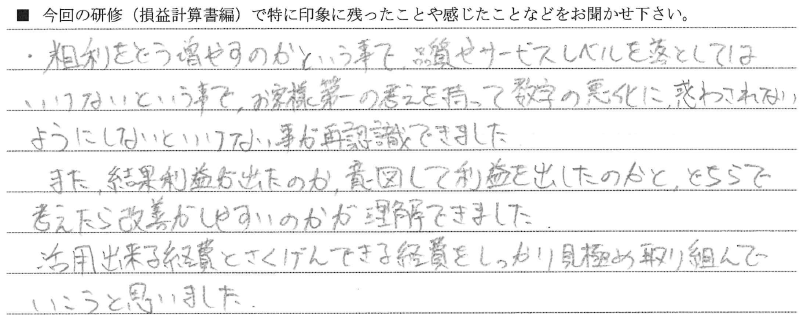 ■ 今回の研修（損益計算書編）で特に印象に残ったことや感じたことなどをお聞かせ下さい。
・粗利をどう増やすのかという事で、品質やサービスレベルを落としては
いけないという事で、お客様第一の考えを持って数字の悪化に、惑わされない
ようにしないといけない事が再認識できました
また、結果利益が出たのか、意図して利益を出したのかと、どちらで
考えたら改善がしやすいのかが理解できました。
活用出来る経費とさくげんできる経費をしっかり見極め取り組んで
いこうと思いました。